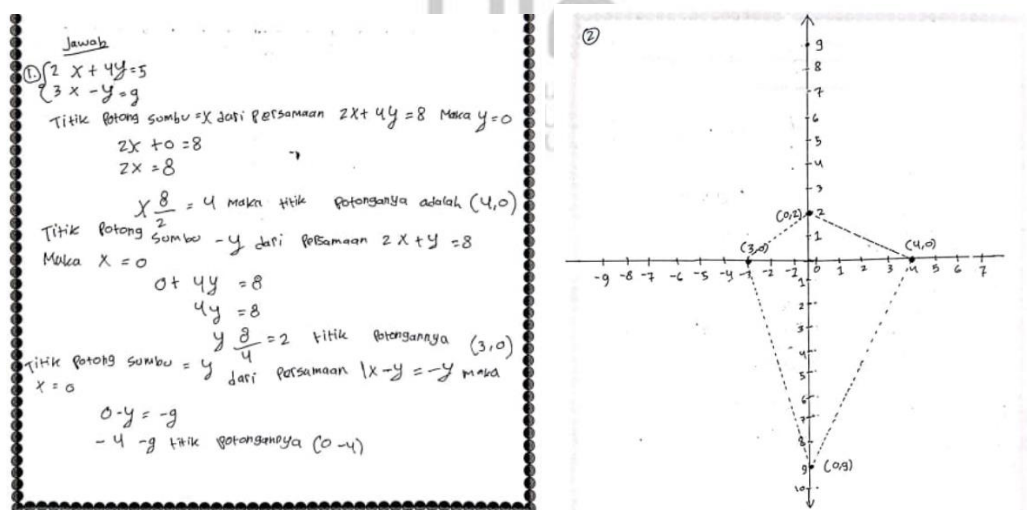 Jawab
①. { 2 x + 4y = 5
{ 3 x - y = g
Titik Potong Sumbu = x dari Persamaan 2x + 4y = 8 Maka y = 0
2x + 0 = 8
2x = 8
x 8/2 = 4 Maka titik Potonganya adalah (4,0)
Titik Potong Sumbu - y dari Persamaan 2x + y = 8
Maka x = 0
0 + 4y = 8
4y = 8
y 8/4 = 2 titik Potongannya (3,0)
Titik Potong Sumbu = y dari Persamaan 1x - y = -y maka
x = 0
0 - y = -g
- 4 -g titik Potonganya (0 -4)
②
9
8
7
6
5
4
3
(0,2) 2
1
(3,0) (4,0)
-9 -8 -7 -6 -5 -4 -3 -2 -1 0 1 2 3 4 5 6 7
1
2
3
4
5
6
7
8
9 (0,9)
10